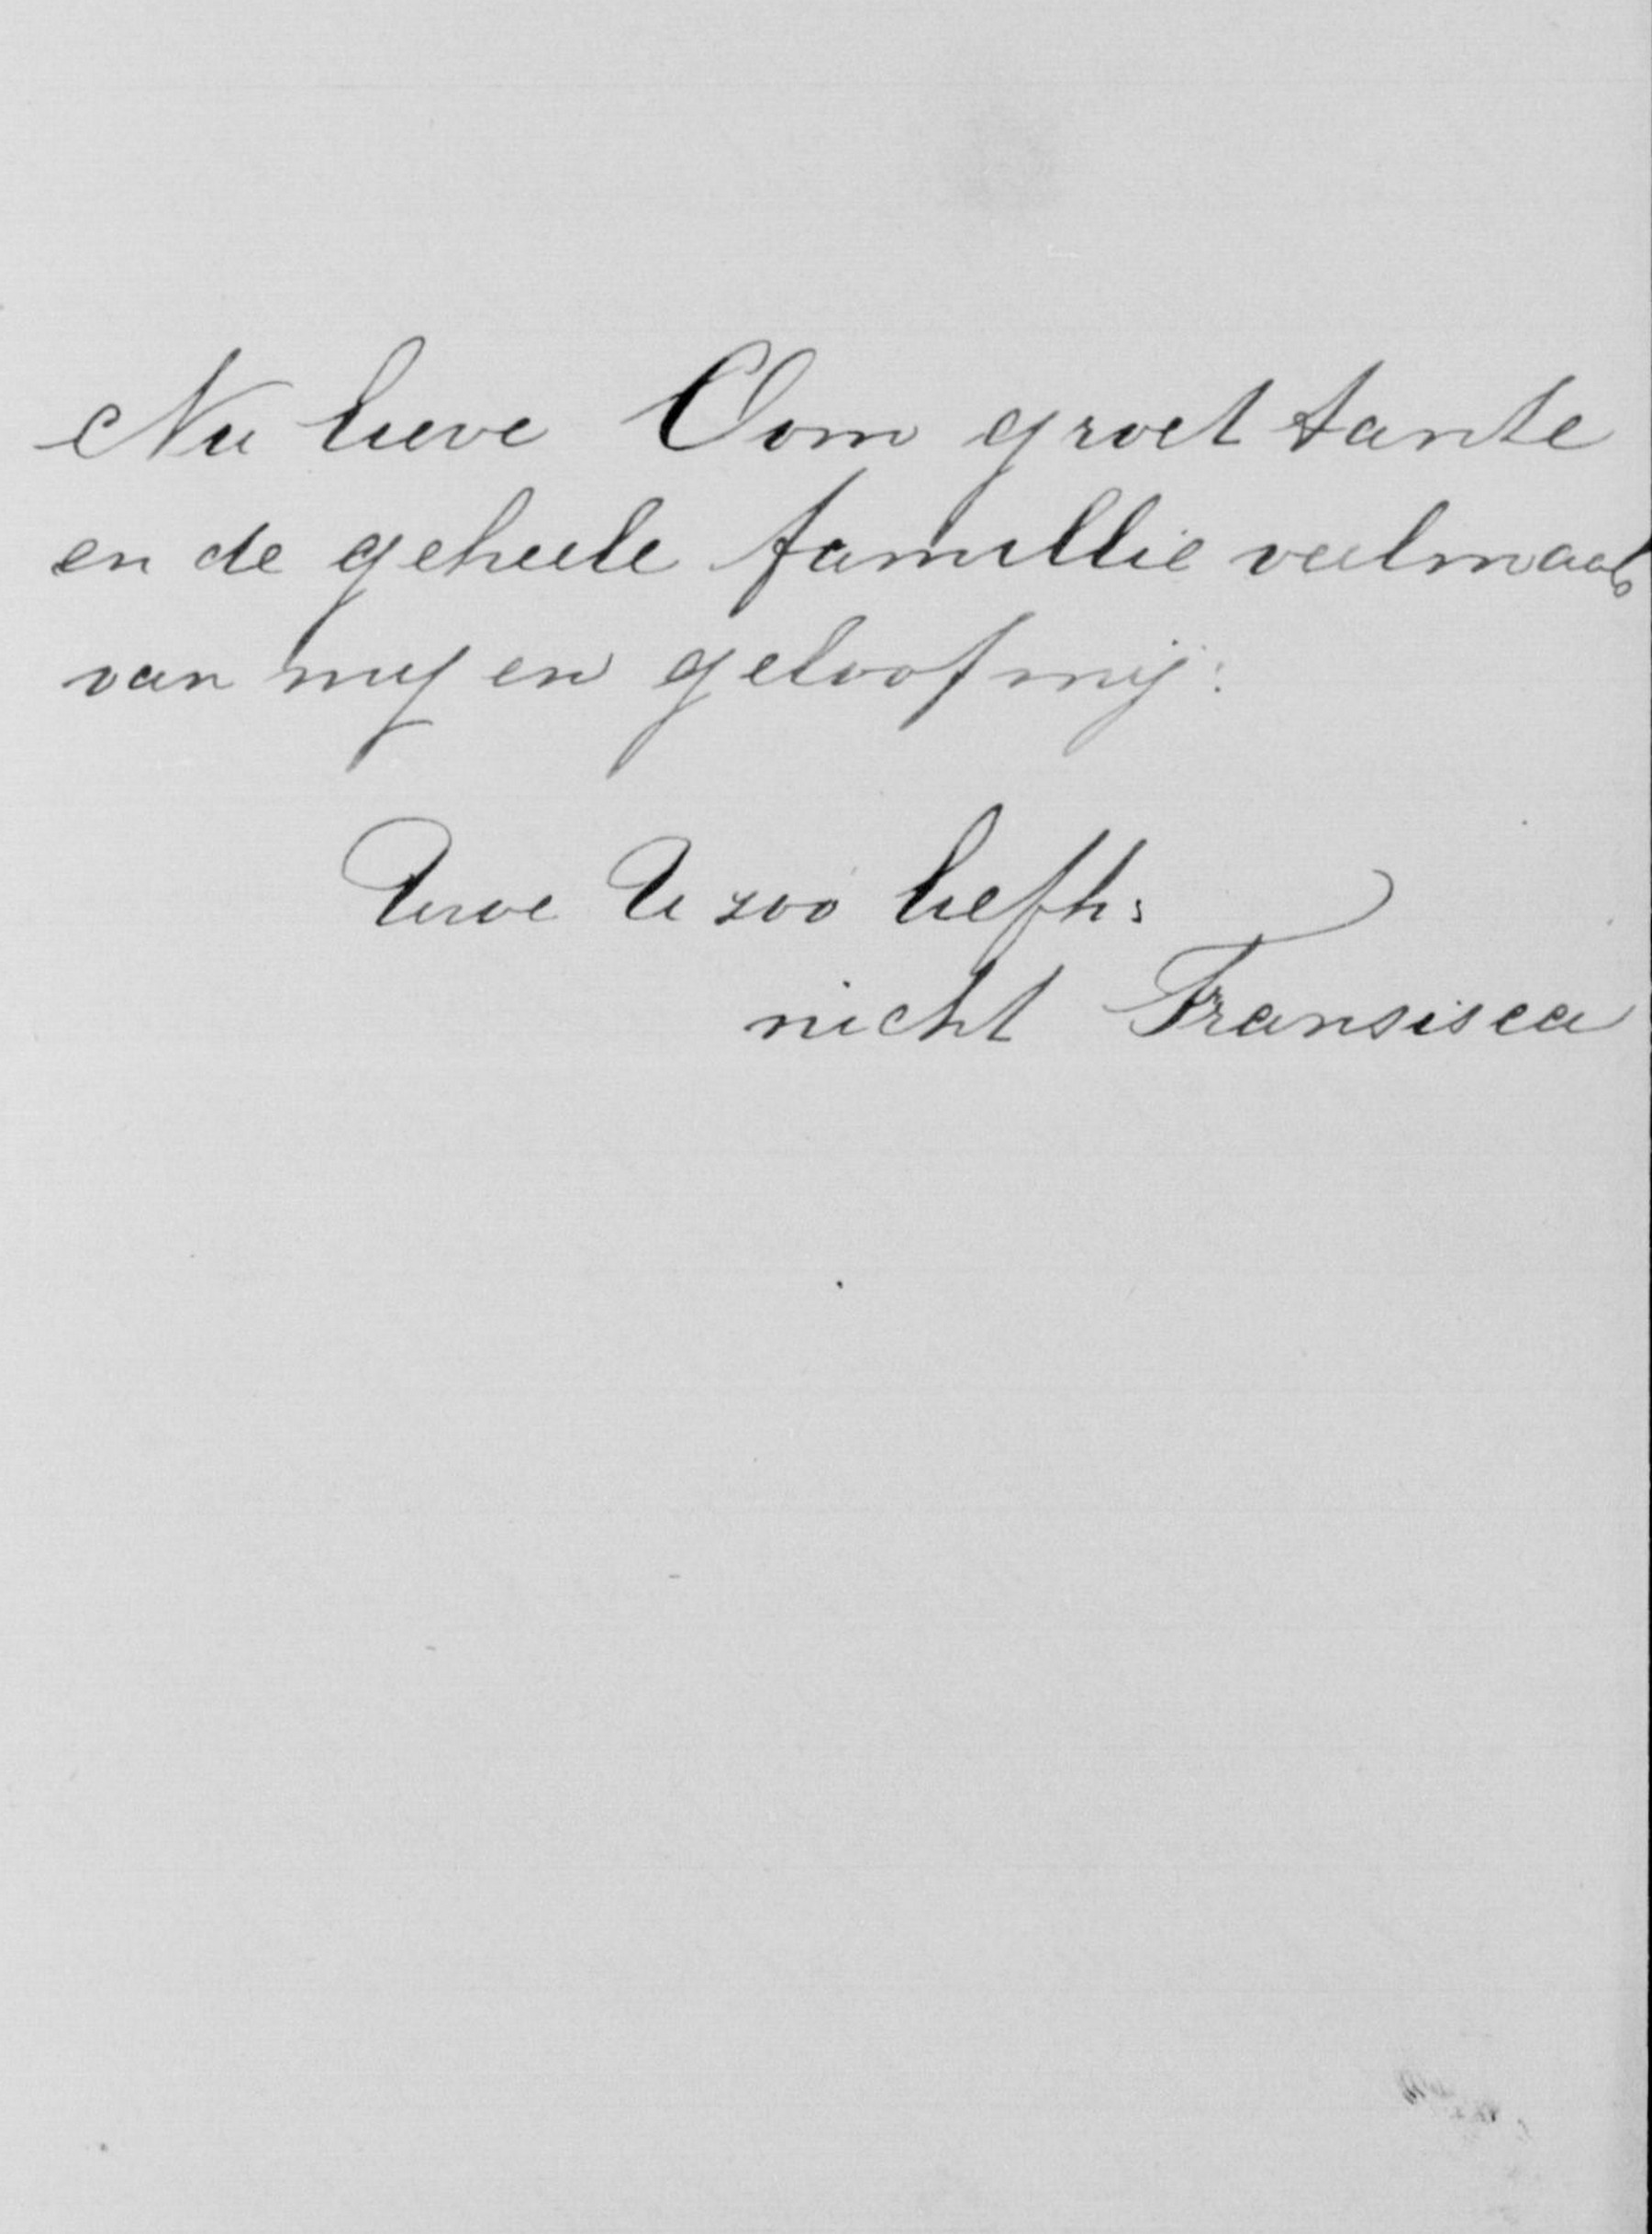 Nu lieve Oom groet tante
en de geheele famillie veelmaals
van mij en geloof mij:
Uwe U zoo liefh:
nicht Fransisca